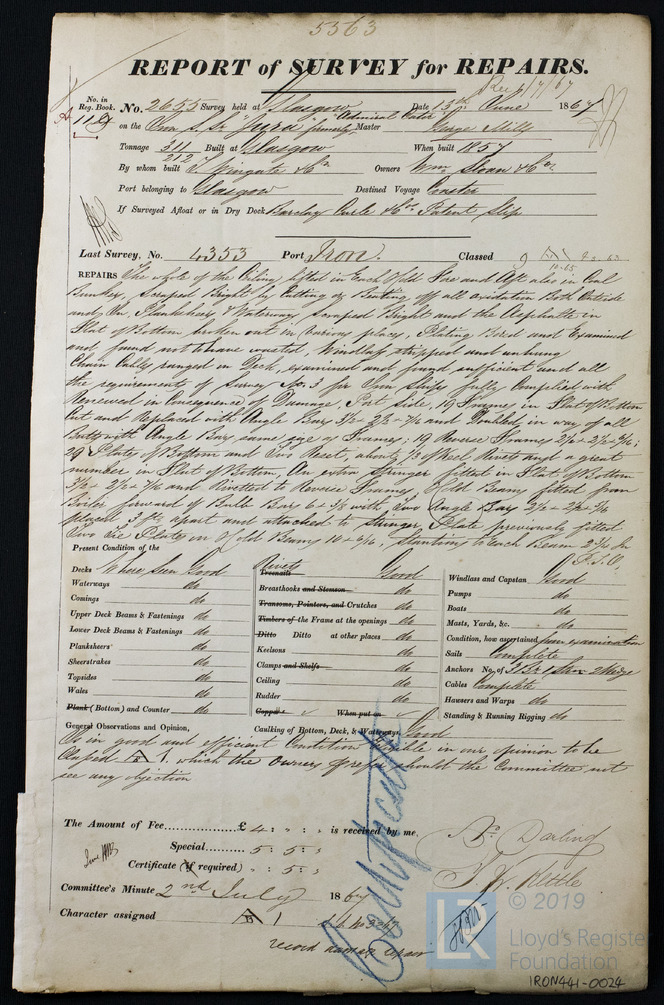 5563
REPORT of SURVEY for REPAIRS.
No. in Reg. Book. No. 2655 Survey held at Glasgow Date 13th June 1867
on the Iron S. Sr "Jura" formerly "Admiral Cator" Master George Mills
Tonnage 311 Built at Glasgow When built 1857
212
By whom built Wingate & Co Owners Wm Sloan & Co
Port belonging to Glasgow Destined Voyage Coaster
If Surveyed Afloat or in Dry Dock Barclay Curle & Co Patent Slip
Last Survey, No. 4353 Port Iron. Classed
REPAIRS The whole of the Ceiling lifted in Each Hold Fore and Aft also in Coal
Bunkers, Scraped Bright by Cutting & Beating off all oxidation Both Outside
and In, Planksheer & Waterway Scraped Bright and the Asphalte in
Flat of Bottom broken out in various places, Plating Bored and Examined
and found not to have wasted, Windlass stripped and unhung
Chain Cables ranged in Deck, examined and found sufficient and all
the requirements of Survey No. 3 for Iron Ships fully Complied with
Renewed in Consequence of Damage, Port Side, 19 Frames in Flat of Bottom
Cut and Replaced with Angle Bars and Doubled in way of all
Butts with Angle Bars same size as Frames, 19 Reverse Frames
29 Plates of Bottom and Reset, about of Keel Rivets and a great
number in Flat of Bottom, An extra Stringer fitted in Flat of Bottom
and Rivetted to Reverse Frames Hold Beams fitted from
Boiler forward of Bulb Bars with Two Angle Bars
placed 3 ft apart and attached to Stringer Plate previously fitted
Two Tie Plates on Hold Beams, stantions to each Beam
P.T.O.
Present Condition of the
Decks Where Seen Good
Waterways do
Comings do
Upper Deck Beams & Fastenings do
Lower Deck Beams & Fastenings do
Planksheers do
Sheerstrakes do
Topsides do
Wales do
Plank (Bottom) and Counter do
Rivets
Treenails Good
Breasthooks and Stemson do
Transoms, Pointers, and Crutches do
Timbers of the Frame at the openings do
Ditto Ditto at other places do
Keelsons do
Clamps and Shelfs do
Ceiling do
Rudder do
Copper When put on
Caulking of Bottom, Deck, & Waterways, Good
Windlass and Capstan Good
Pumps do
Boats do
Masts, Yards, &c. do
Condition, how ascertained from examination
Sails Complete
Anchors No. of 3 Br 1 Strm 2 Kedge
Cables Complete
Hausers and Warps do
Standing & Running Rigging do
General Observations and Opinion,
Is in good and efficient Condition eligible in our opinion to be
Classed A 1, which the owners prefer should the Committee not
see any objection
The Amount of Fee £ 4 : " : " is received by me,
Special 5 : 5 :
Certificate (if required) " : 5 :
A. Darling
T. W. Kettle
Committee's Minute 2nd July 1867
Character assigned A 1
record damage repair
Certificate
© 2019
LR
Lloyd's Register
Foundation
IRON441-0024